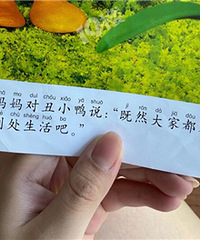 ma duì chǒu xiǎo yā shuō jì rán dà jiā dōu
妈妈对丑小鸭说：“既然大家都
chù shēng huó ba
处生活吧。”